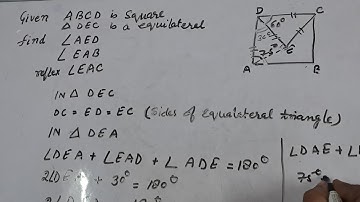 Given ABCD is Square
△DEC is a equilateral
find ∠AED
∠EAB
reflex ∠EAC
D C
60°
30°
75°
E
A B
IN △ DEC
DC = ED = EC (Sides of equalateral triangle)
IN △ DEA
∠DEA + ∠EAD + ∠ADE = 180°
+ 30° = 180°
∠DAE + ∠
75°